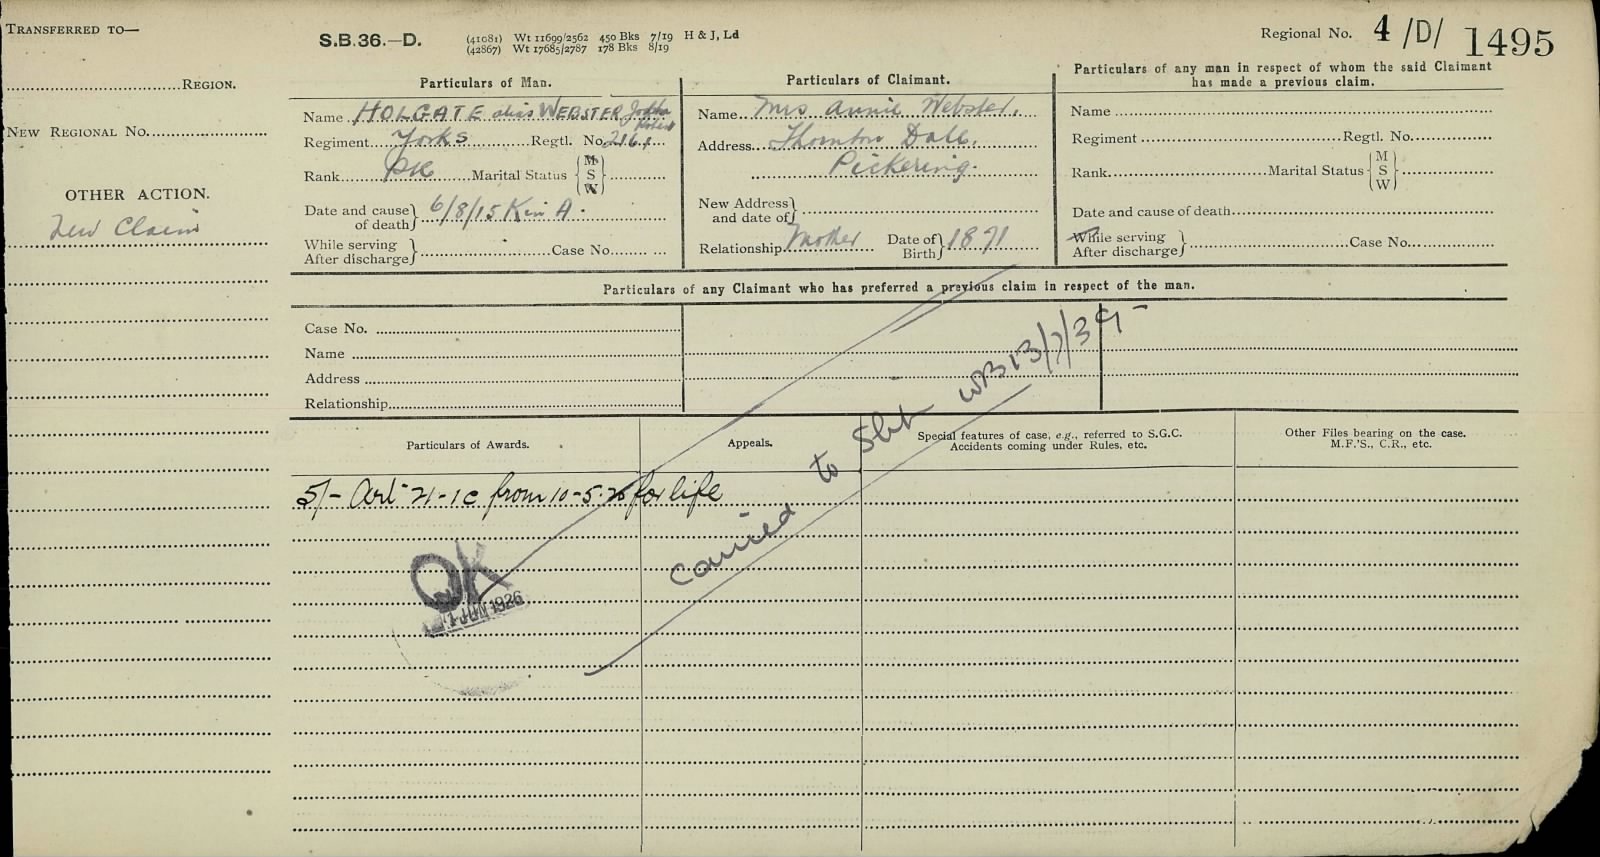 TRANSFERRED TO—
REGION.
NEW REGIONAL No.
OTHER ACTION.
New Claim
S.B.36.—D.
(41081) Wt 11699/2562 450 Bks 7/19 H & J, Ld
(42867) Wt 17685/2787 178 Bks 8/19
Regional No. 4 /D/ 1495
Particulars of Man.
Name HOLGATE alias WEBSTER John
Regiment Yorks Regtl. No.
Rank Pte Marital Status { M S W }
Date and cause of death } 6/8/15 K in A.
While serving
After discharge } Case No.
Particulars of Claimant.
Name Mrs Annie Webster.
Address Thornton Dale,
Pickering.
New Address
and date of }
Relationship Mother Date of Birth } 1871
Particulars of any man in respect of whom the said Claimant
has made a previous claim.
Name
Regiment Regtl. No.
Rank Marital Status { M S W
Date and cause of death
While serving
After discharge } Case No.
Particulars of any Claimant who has preferred a previous claim in respect of the man.
Case No.
Name
Address
Relationship
Particulars of Awards.
Appeals.
Special features of case, e.g., referred to S.G.C.
Accidents coming under Rules, etc.
Other Files bearing on the case.
M.F.'S., C.R., etc.
5/- Art 21-1c from 10-5-26 for life
Carried to Slip WB 13/7/39
QK
1 JUN 1926